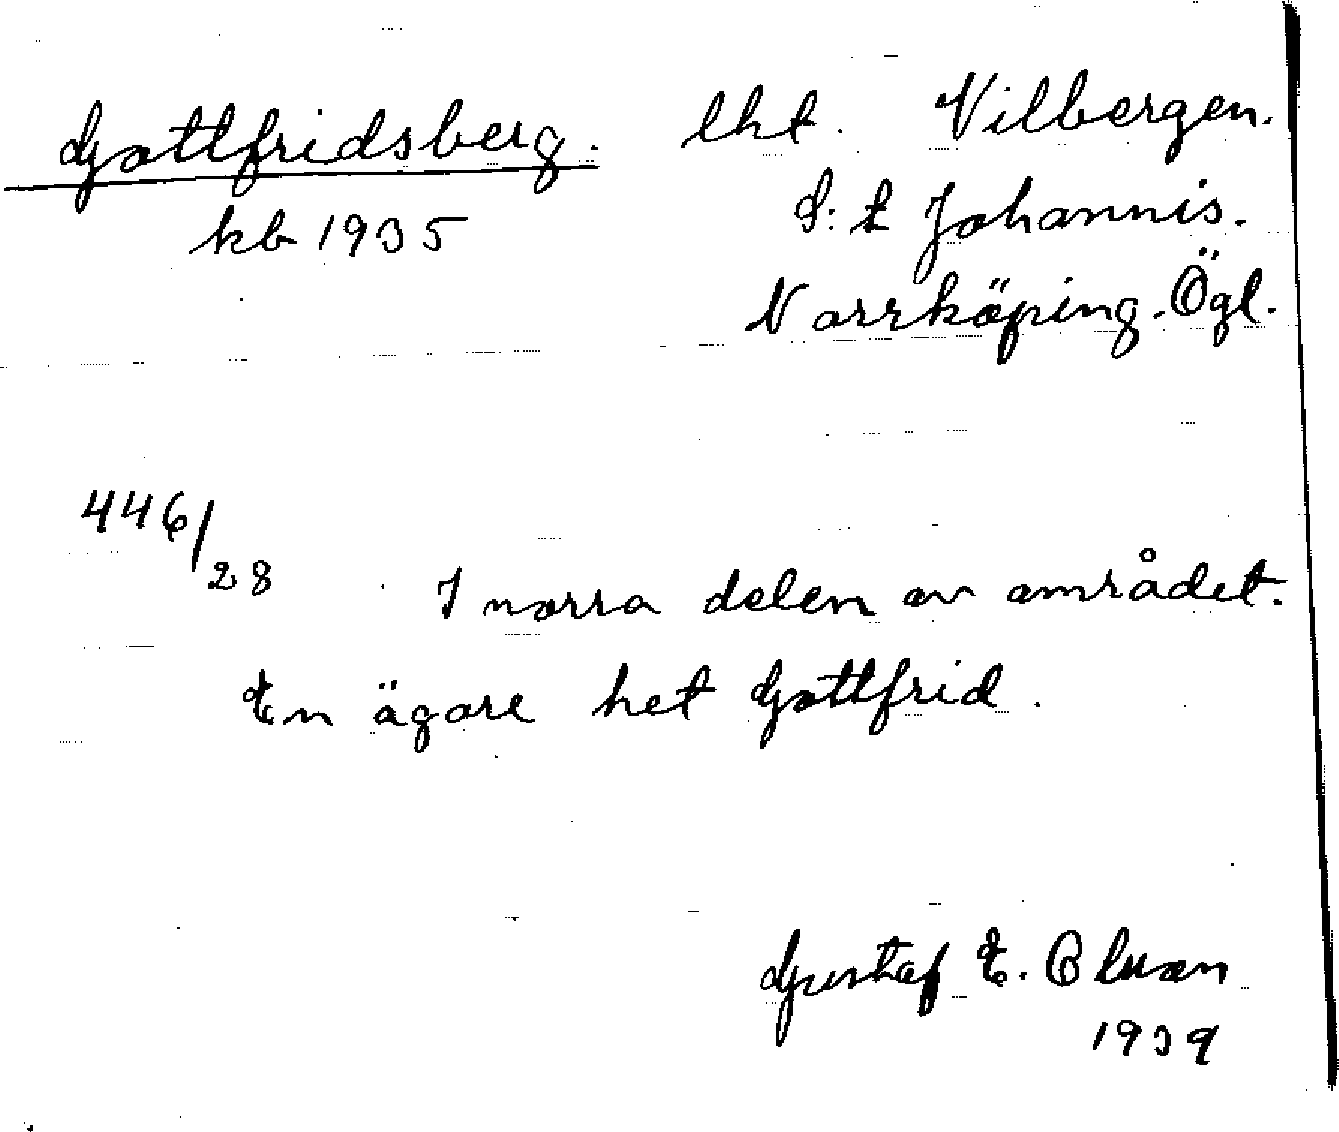 Gottfridsberg. lht. Vilbergen.
kb 1935 S:t Johannis.
Norrköping. Ögl.
446/28 I norra delen av området.
En ägare het Gottfrid.
Gustaf E. Olsson
1939